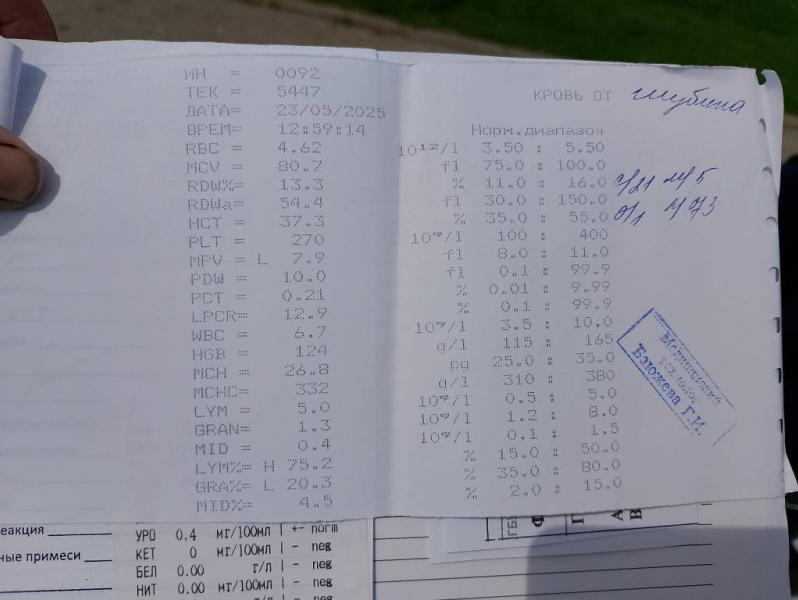 ИН = 0092
ТЕК = 5447
ДАТА= 23/05/2025
ВРЕМ= 12:59:14
RBC = 4.62
MCV = 80.7
RDW%= 13.3
RDWa= 54.4
HCT = 37.3
PLT = 270
MPV = L 7.9
PDW = 10.0
PCT = 0.21
LPCR= 12.9
WBC = 6.7
HGB = 124
MCH = 26.8
MCHC= 332
LYM = 5.0
GRAN= 1.3
MID = 0.4
LYM%= H 75.2
GRA%= L 20.3
MID%= 4.5
КРОВЬ ОТ глубина
Норм.диапазон
10¹²/l 3.50 : 5.50
fl 75.0 : 100.0
% 11.0 : 16.0
fl 30.0 : 150.0
% 35.0 : 55.0
10⁹/l 100 : 400
fl 8.0 : 11.0
fl 0.1 : 99.9
% 0.01 : 9.99
% 0.1 : 99.9
10⁹/l 3.5 : 10.0
g/l 115 : 165
pg 25.0 : 35.0
g/l 310 : 380
10⁹/l 0.5 : 5.0
10⁹/l 1.2 : 8.0
10⁹/l 0.1 : 1.5
% 15.0 : 50.0
% 35.0 : 80.0
% 2.0 : 15.0
с/21 м/5
э/1 л/73
Медицинский
технолог
Бэложева Г.И.
еакция
ные примеси
УРО 0.4 мг/100мл +- norm
КЕТ 0 мг/100мл - neg
БЕЛ 0.00 г/л - neg
НИТ 0.00 мг/100мл - neg